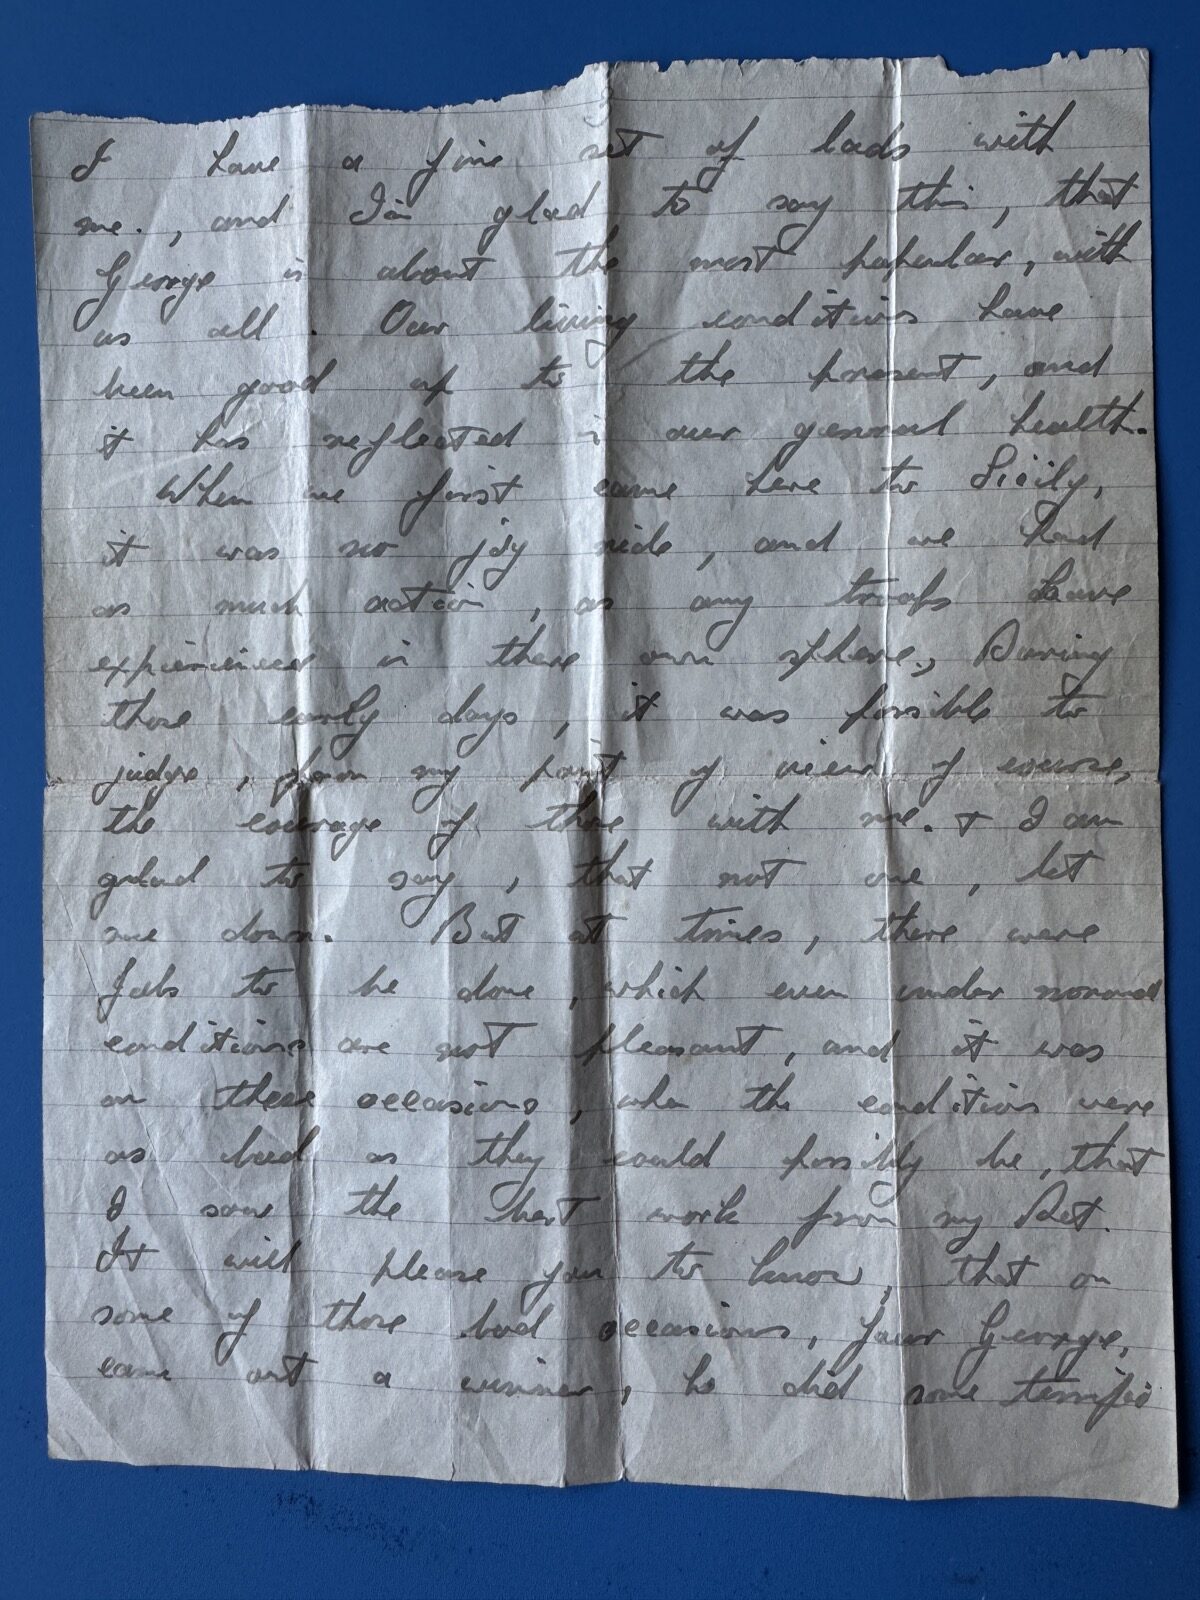 I have a fine set of lads with
me., and I'm glad to say this, that
George is about the most popular, with
us all. Our living conditions have
been good up to the present, and
it has reflected in our general health.
When we first came here to Sicily,
it was no joy ride, and we had
as much action, as any troops have
experienced in there own sphere., During
those early days, it was possible to
judge, from my point of view of course,
the courage of those with me. + I am
glad to say, that not one, let
me down. But at times, there were
Jobs to be done, which even under normal
conditions are not pleasant, and it was
on these occasions, when the conditions were
as bad as they could possibly be, that
I saw the best work from my Det.
It will please you to know, that on
some of those bad occasions, Your George,
came out a winner, he did some terrific